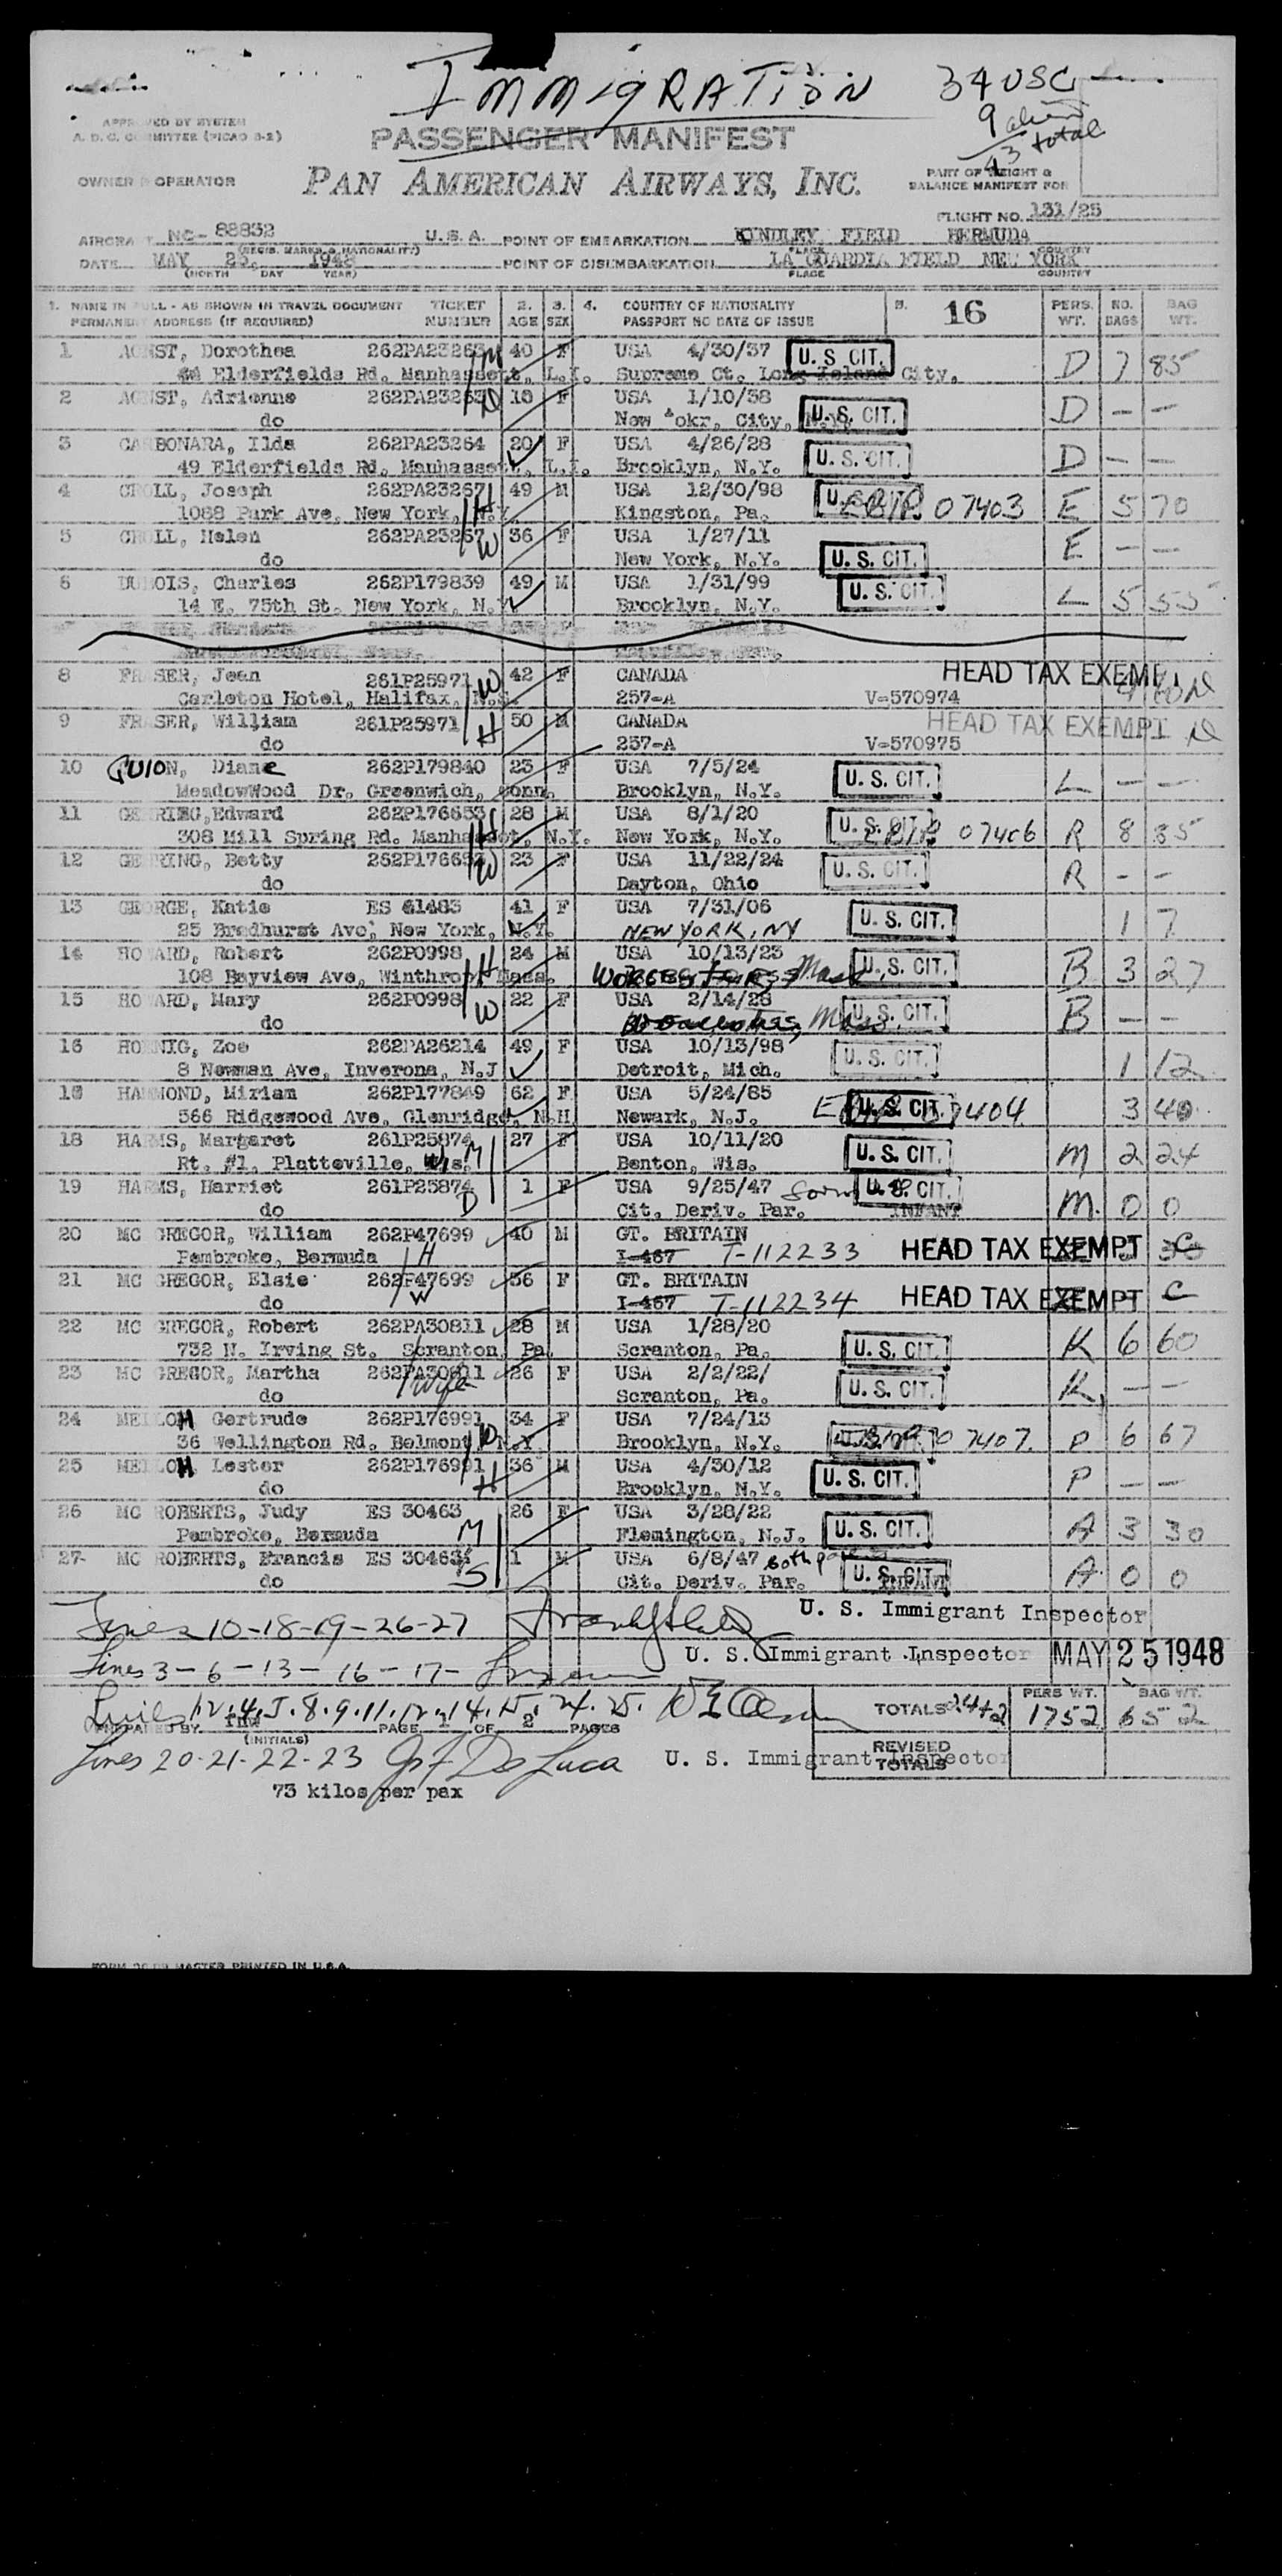 IMMIGRATION 34 USC
9 alien
43 total
APPROVED BY SYSTEM
A. D. C. COMMITTEE (PICAO 8-2)
PASSENGER MANIFEST
OWNER OPERATOR PAN AMERICAN AIRWAYS, INC. PART OF WEIGHT &
BALANCE MANIFEST FOR
FLIGHT NO. 131/25
AIRCRAFT NC- 88832 U.S.A. POINT OF EMBARKATION KINDLEY FIELD BERMUDA
(REGIS. MARKS & NATIONALITY) PLACE COUNTRY
DATE MAY 25, 1948 POINT OF DISEMBARKATION LA GUARDIA FIELD NEW YORK
(MONTH DAY YEAR) PLACE COUNTRY
1. NAME IN FULL - AS SHOWN IN TRAVEL DOCUMENT TICKET 2. 3. 4. COUNTRY OF NATIONALITY 5. 16 PERS. NO. BAG
PERMANENT ADDRESS (IF REQUIRED) NUMBER AGE SEX PASSPORT NO DATE OF ISSUE WT. BAGS WT.
1 AGNST, Dorothea 262PA23263 M 40 F USA 4/30/37 U. S. CIT. D 7 85
44 Elderfields Rd. Manhassett, L.I. Supreme Ct. Long Island City.
2 AGNST, Adrienne 262PA23263 D 10 F USA 1/10/38 U. S. CIT. D — —
do New Yokr, City, N.Y.
3 CARBONARA, Ilda 262PA23264 20 F USA 4/26/28 U. S. CIT. D — —
49 Elderfields Rd. Manhassett, L.I. Brooklyn, N.Y.
4 CROLL, Joseph 262PA23267 H 49 M USA 12/30/98 U. S. CIT. 07403 E 5 70
1088 Park Ave, New York, N.Y. Kingston, Pa.
5 CROLL, Helen 262PA23267 W 36 F USA 1/27/11 E — —
do New York, N.Y. U. S. CIT.
6 DUBOIS, Charles 262P179839 49 M USA 1/31/99 U. S. CIT. L 5 55
14 E. 75th St. New York, N.Y. Brooklyn, N.Y.
8 FRASER, Jean 261P25971 W 42 F CANADA HEAD TAX EXEMPT
Carleton Hotel, Halifax, N.S. 257-A V-570974
9 FRASER, William 261P25971 H 50 M CANADA HEAD TAX EXEMPT
do 257-A V-570975
10 GUION, Diane 262P179840 23 F USA 7/5/24 U. S. CIT. L — —
MeadowWood Dr. Greenwich, Conn. Brooklyn, N.Y.
11 GEHRING, Edward 262P176653 H 28 M USA 8/1/20 U. S. CIT. 07406 R 8 85
308 Mill Spring Rd. Manhasset, N.Y. New York, N.Y.
12 GEHRING, Betty 262P176653 W 23 F USA 11/22/24 U. S. CIT. R - -
do Dayton, Ohio
13 GEORGE, Katie ES 41483 41 F USA 7/31/06 U. S. CIT. 1 7
25 Bradhurst Ave, New York, N.Y. NEW YORK, NY
14 HOWARD, Robert 262P0998 H 24 M USA 10/13/23 U. S. CIT. B 3 27
108 Bayview Ave, Winthrop Mass. Worcester, Mass
15 HOWARD, Mary 262P0998 W 22 F USA 2/14/26 U. S. CIT. B — —
do Mass.
16 HOENIG, Zoe 262PA26214 49 F USA 10/13/98 U. S. CIT. 1 12
8 Newman Ave, Inverona, N.J. Detroit, Mich.
HAMMOND, Miriam 262P177849 62 F USA 5/24/85 U. S. CIT. 07404 3 40
566 Ridgewood Ave, Glenridge, N.H. Newark, N.J.
18 HARMS, Margaret 261P25874 M 27 F USA 10/11/20 U. S. CIT. M 2 24
Rt. #1, Platteville, Wis. Benton, Wis.
19 HARMS, Harriet 261P25874 D 1 F USA 9/25/47 U. S. CIT. M. 0 0
do Cit. Deriv. Par. INFANT
20 MC GREGOR, William 262P47699 40 M GT. BRITAIN HEAD TAX EXEMPT C
Pembroke, Bermuda H I-467 T-112233
21 MC GREGOR, Elsie 262P47699 36 F GT. BRITAIN HEAD TAX EXEMPT C
do W I-467 T-112234
22 MC GREGOR, Robert 262PA30811 28 M USA 1/28/20 U. S. CIT. K 6 60
732 N. Irving St. Scranton, Pa. Scranton, Pa.
23 MC GREGOR, Martha 262PA30811 wife 26 F USA 2/2/22/ U. S. CIT. K — —
do Scranton, Pa.
24 MELLOH Gertrude 262P176991 W 34 F USA 7/24/13 U. S. CIT. 07407 P 6 67
36 Wellington Rd. Belmont, N.Y. Brooklyn, N.Y.
25 MELLOH, Lester 262P176991 H 36 M USA 4/30/12 U. S. CIT. P — —
do Brooklyn, N.Y.
26 MC ROBERTS, Judy ES 30463 M 26 F USA 3/28/22 U. S. CIT. A 3 30
Pembroke, Bermuda Flemington, N.J.
27 MC ROBERTS, Francis ES 30463 S 1 M USA 6/8/47 U. S. CIT. A 0 0
do Cit. Deriv. Par. INFANT
Lines 10-18-19-26-27 U. S. Immigrant Inspector
Lines 3-6-13-16-17- U. S. Immigrant Inspector MAY 25 1948
Lines 1.2.4.5.8.9.11.12.14.15.24.25. TOTALS 24+2 PERS WT. 1752 BAG WT. 652
PREPARED BY (INITIALS) PAGE 1 OF 2 PAGES
Lines 20-21-22-23 Jos F De Luca U. S. Immigrant Inspector REVISED TOTALS
73 kilos per pax
MASTER PRINTED IN U.S.A.